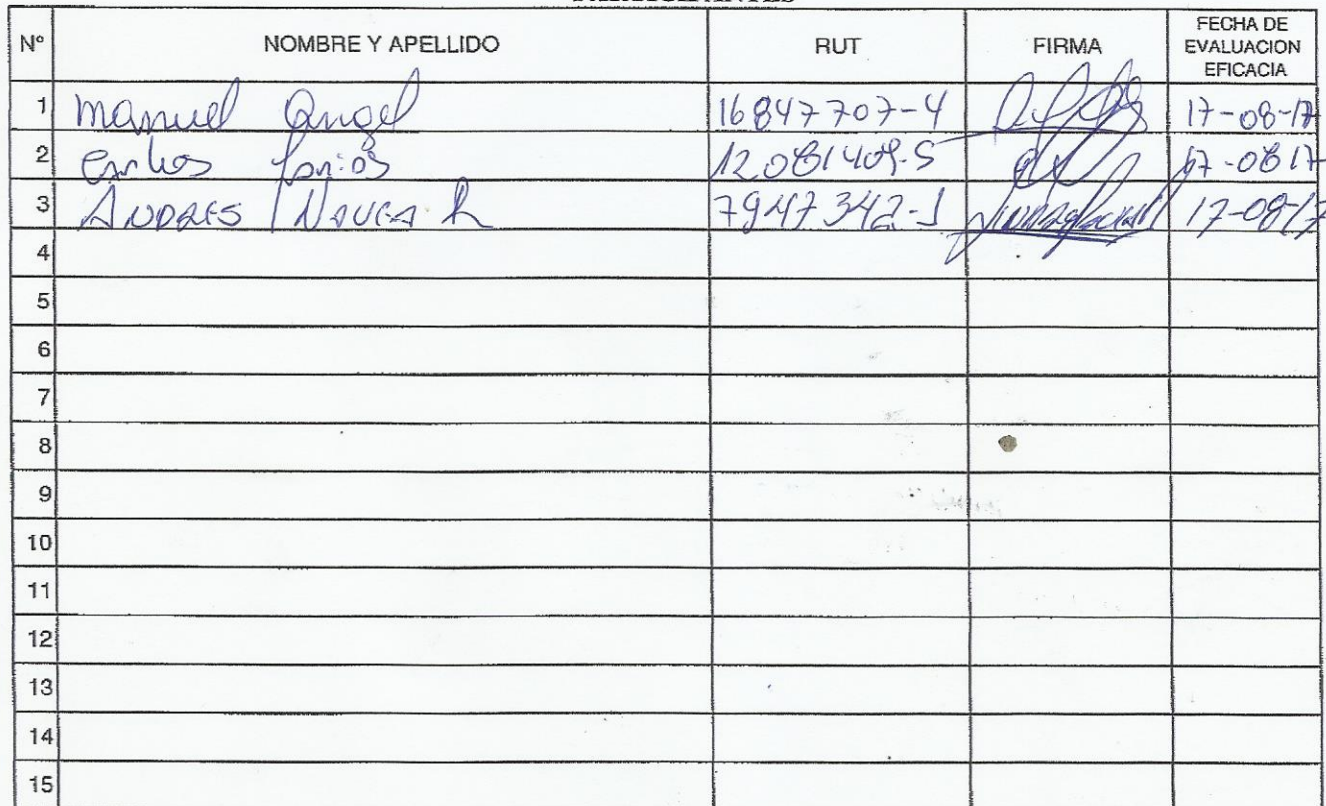 Nº NOMBRE Y APELLIDO RUT FIRMA FECHA DE EVALUACION EFICACIA
1 Manuel Angel 16847707-4 17-08-17
2 12081409-5 17-0817
3 ANDRES 7947342-1 17-08-17
4
5
6
7
8
9
10
11
12
13
14
15